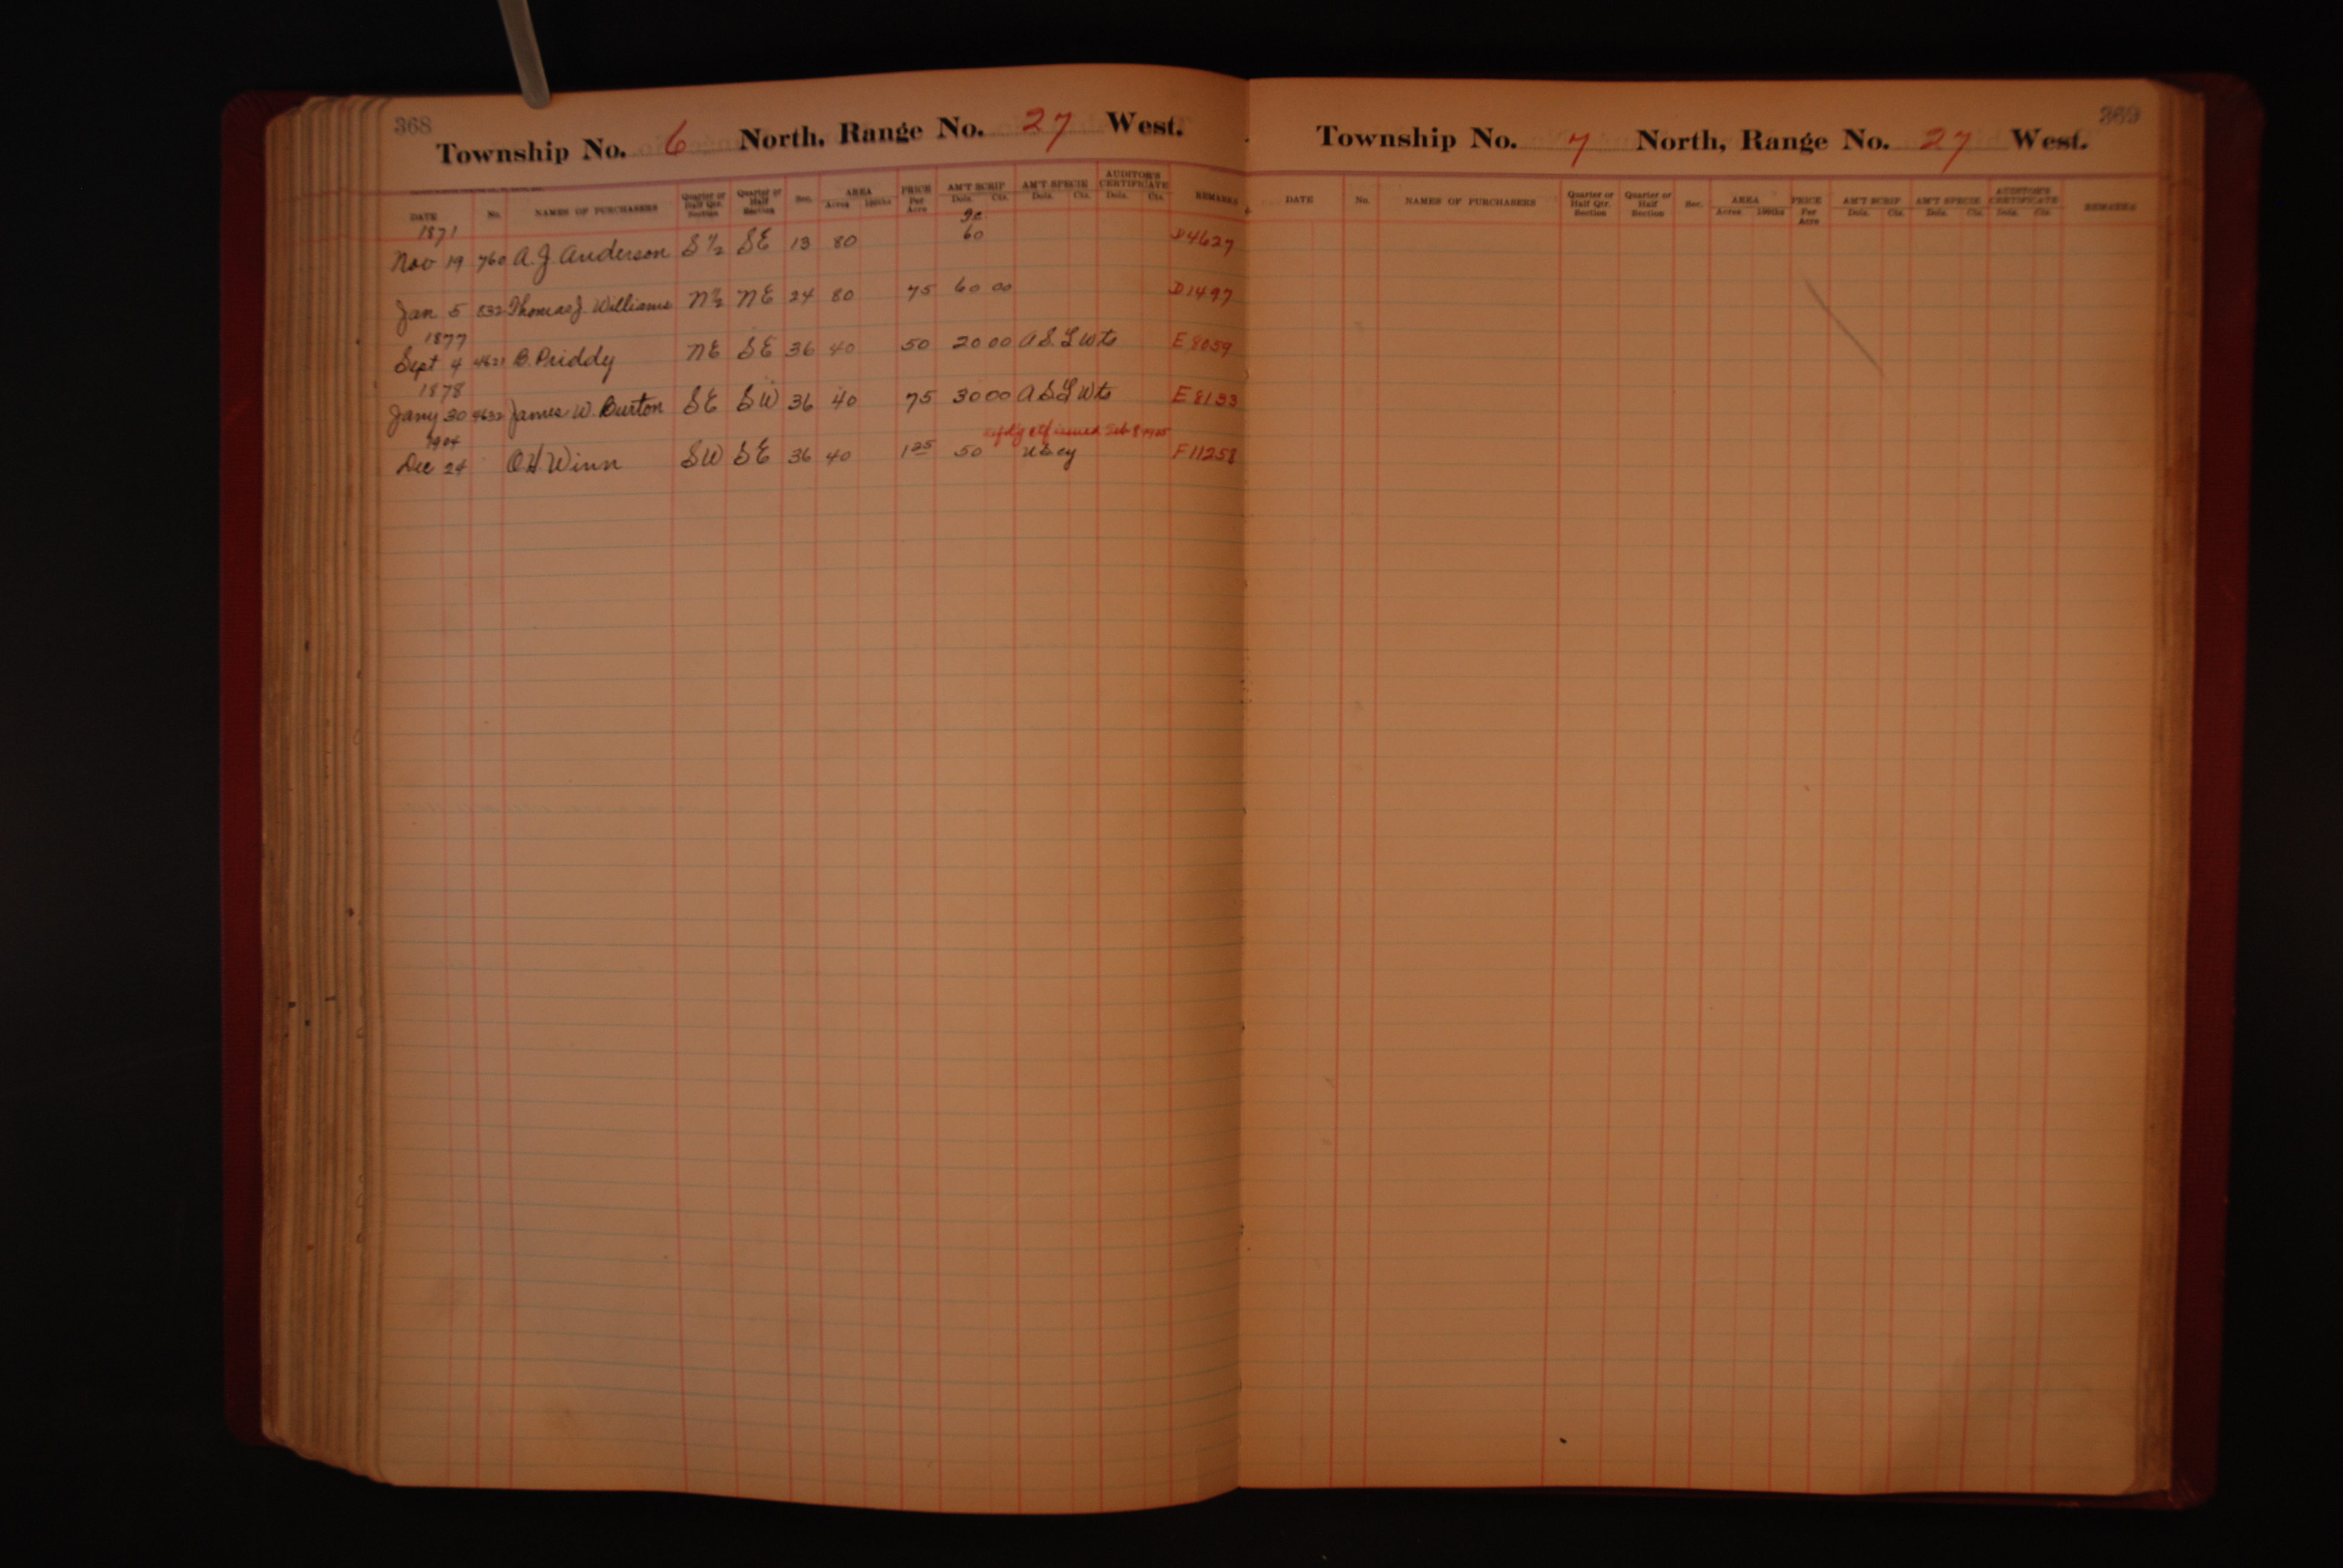 368
Township No. 6 North, Range No. 27 West.
DATE No. NAMES OF PURCHASERS Quarter or Half Qtr. Section Quarter or Half Section Sec. AREA Acres 100ths PRICE Per Acre AM'T SCRIP Dols. Cts. AM'T SPECIE Dols. Cts. AUDITOR'S CERTIFICATE Dols. Cts. REMARKS
1871
Nov 19 760 A. J. Anderson S 1/2 SE 13 80 60 D4627
Jan 5 832 Thomas J. Williams N 1/2 NE 24 80 75 60 00 D1497
1877
Sept 4 B. Priddy NE SE 36 40 50 20 00 A S L Wts E 8059
1878
Jany 30 4632 James W. Burton SE SW 36 40 75 30 00 A S L Wts E 8133
1904 issued Feb 8 1905
Dec 24 O. H. Winn SW SE 36 40 1 25 50 F 11258
369
Township No. 7 North, Range No. 27 West.
DATE No. NAMES OF PURCHASERS Quarter or Half Qtr. Section Quarter or Half Section Sec. AREA Acres 100ths PRICE Per Acre AM'T SCRIP Dols. Cts. AM'T SPECIE Dols. Cts. AUDITOR'S CERTIFICATE Dols. Cts. REMARKS